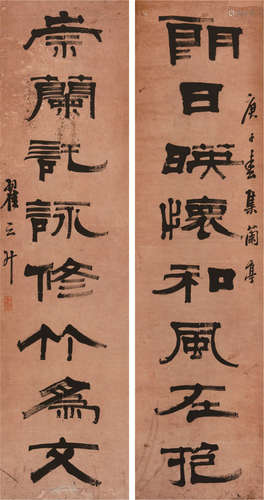 朗日暎懷和風在抱
庚子春集蘭亭
崇蘭託詠修竹為文
翟云升